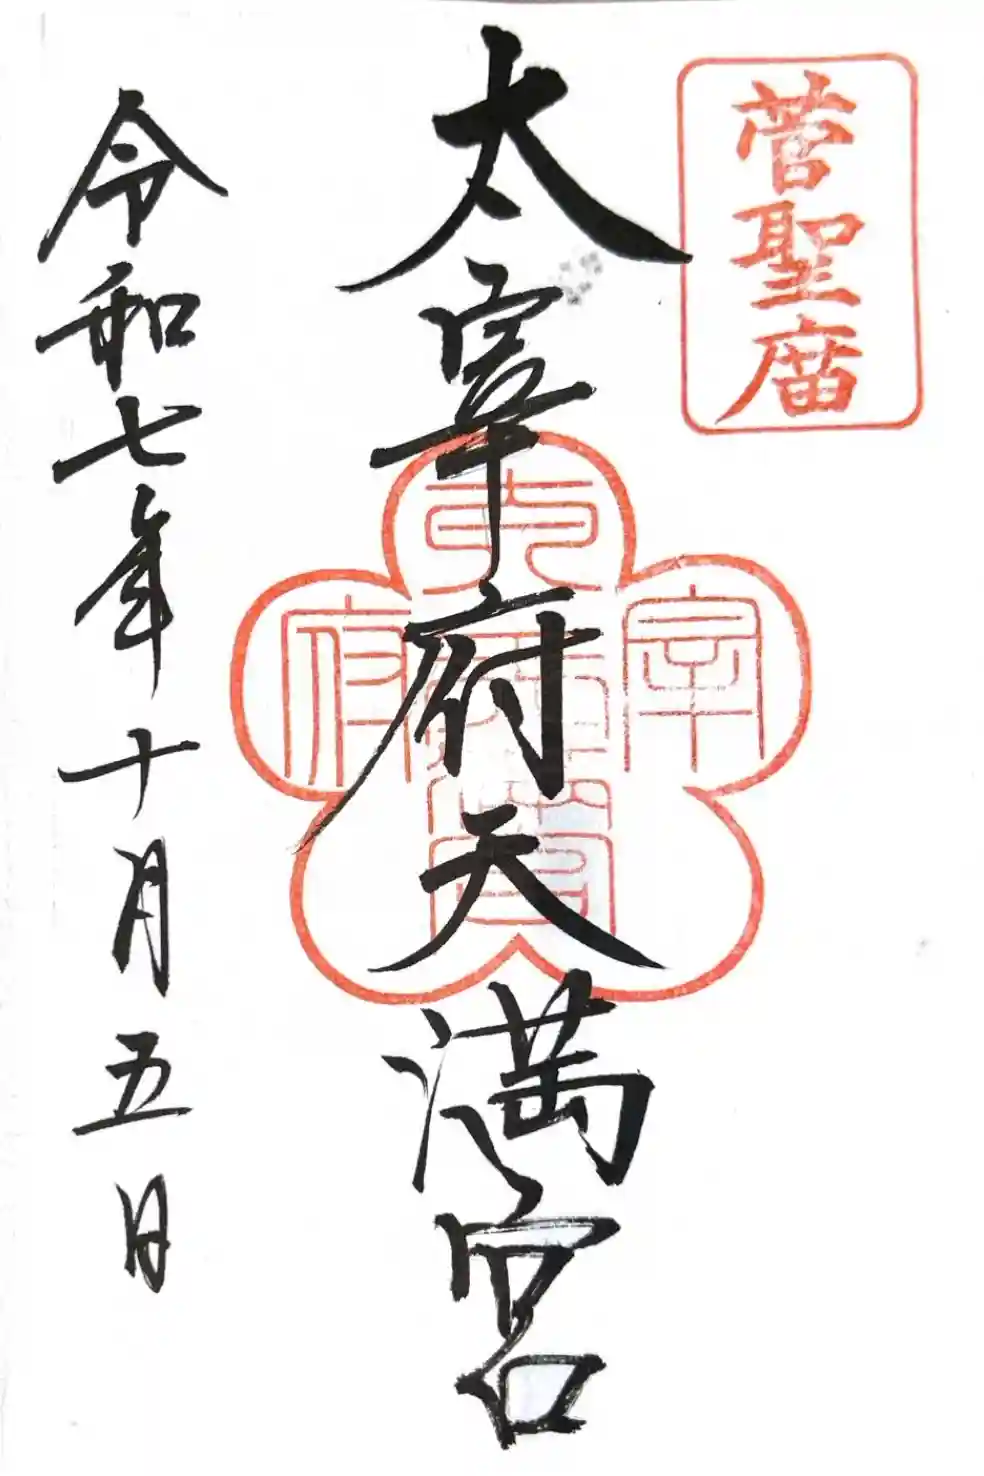 菅聖庿
太宰府天満宮
太宰府
令和七年十月五日